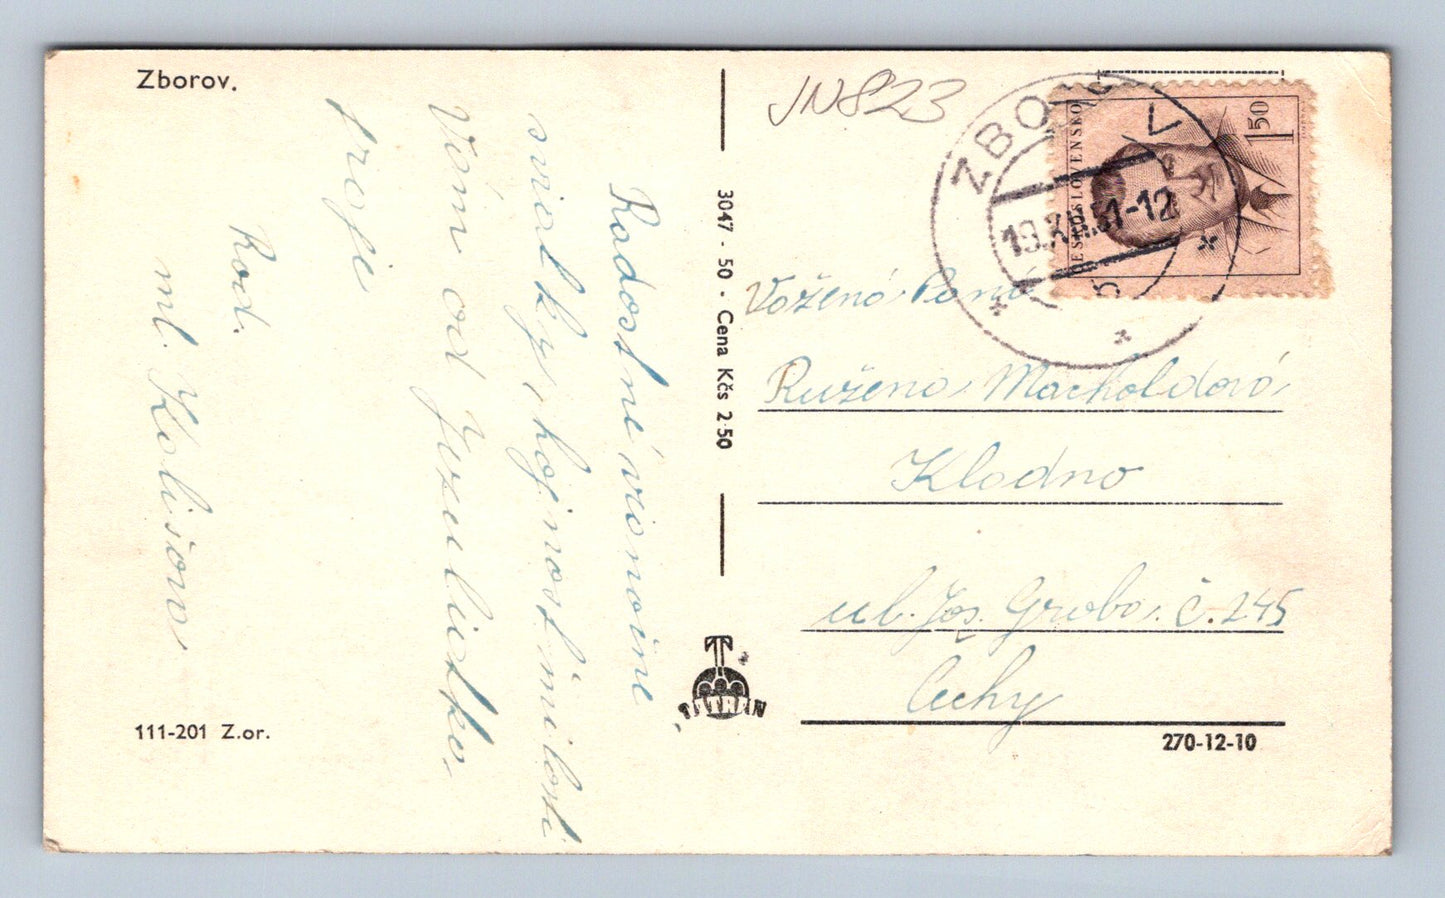 Zborov.
JN823
ZBOROV
19.XII.51-12
ČESKOSLOVENSKO
1 50
Radostné vianočné
sviatky, hojnosť milosti
Vám od Jezuliatka,
praje
Rod.
ml. Kolišova
3047 - 50 . Cena Kčs 2·50
Vážená Pani
Ružena Macholdová
Kladno
ul. Jos. Groba č. 245
Čechy
TATRAN
111-201 Z.or.
270-12-10